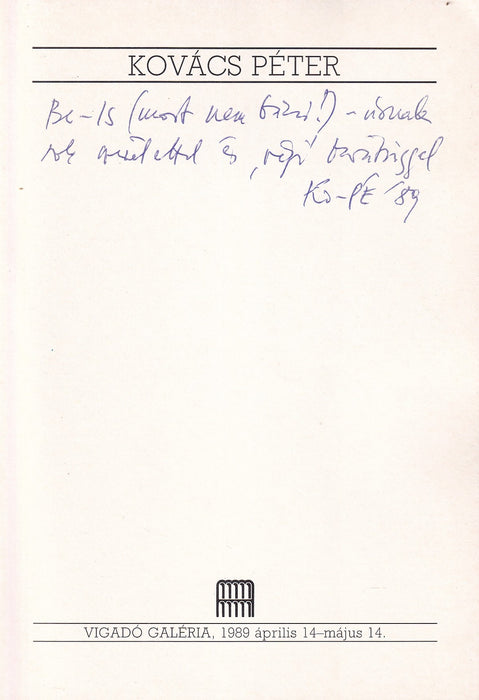 KOVÁCS PÉTER
Be-Is (most nem bácsi!) - úrnak
sok szeretettel és „régi" barátsággal
Ko-PÉ '89
VIGADÓ GALÉRIA, 1989 április 14–május 14.